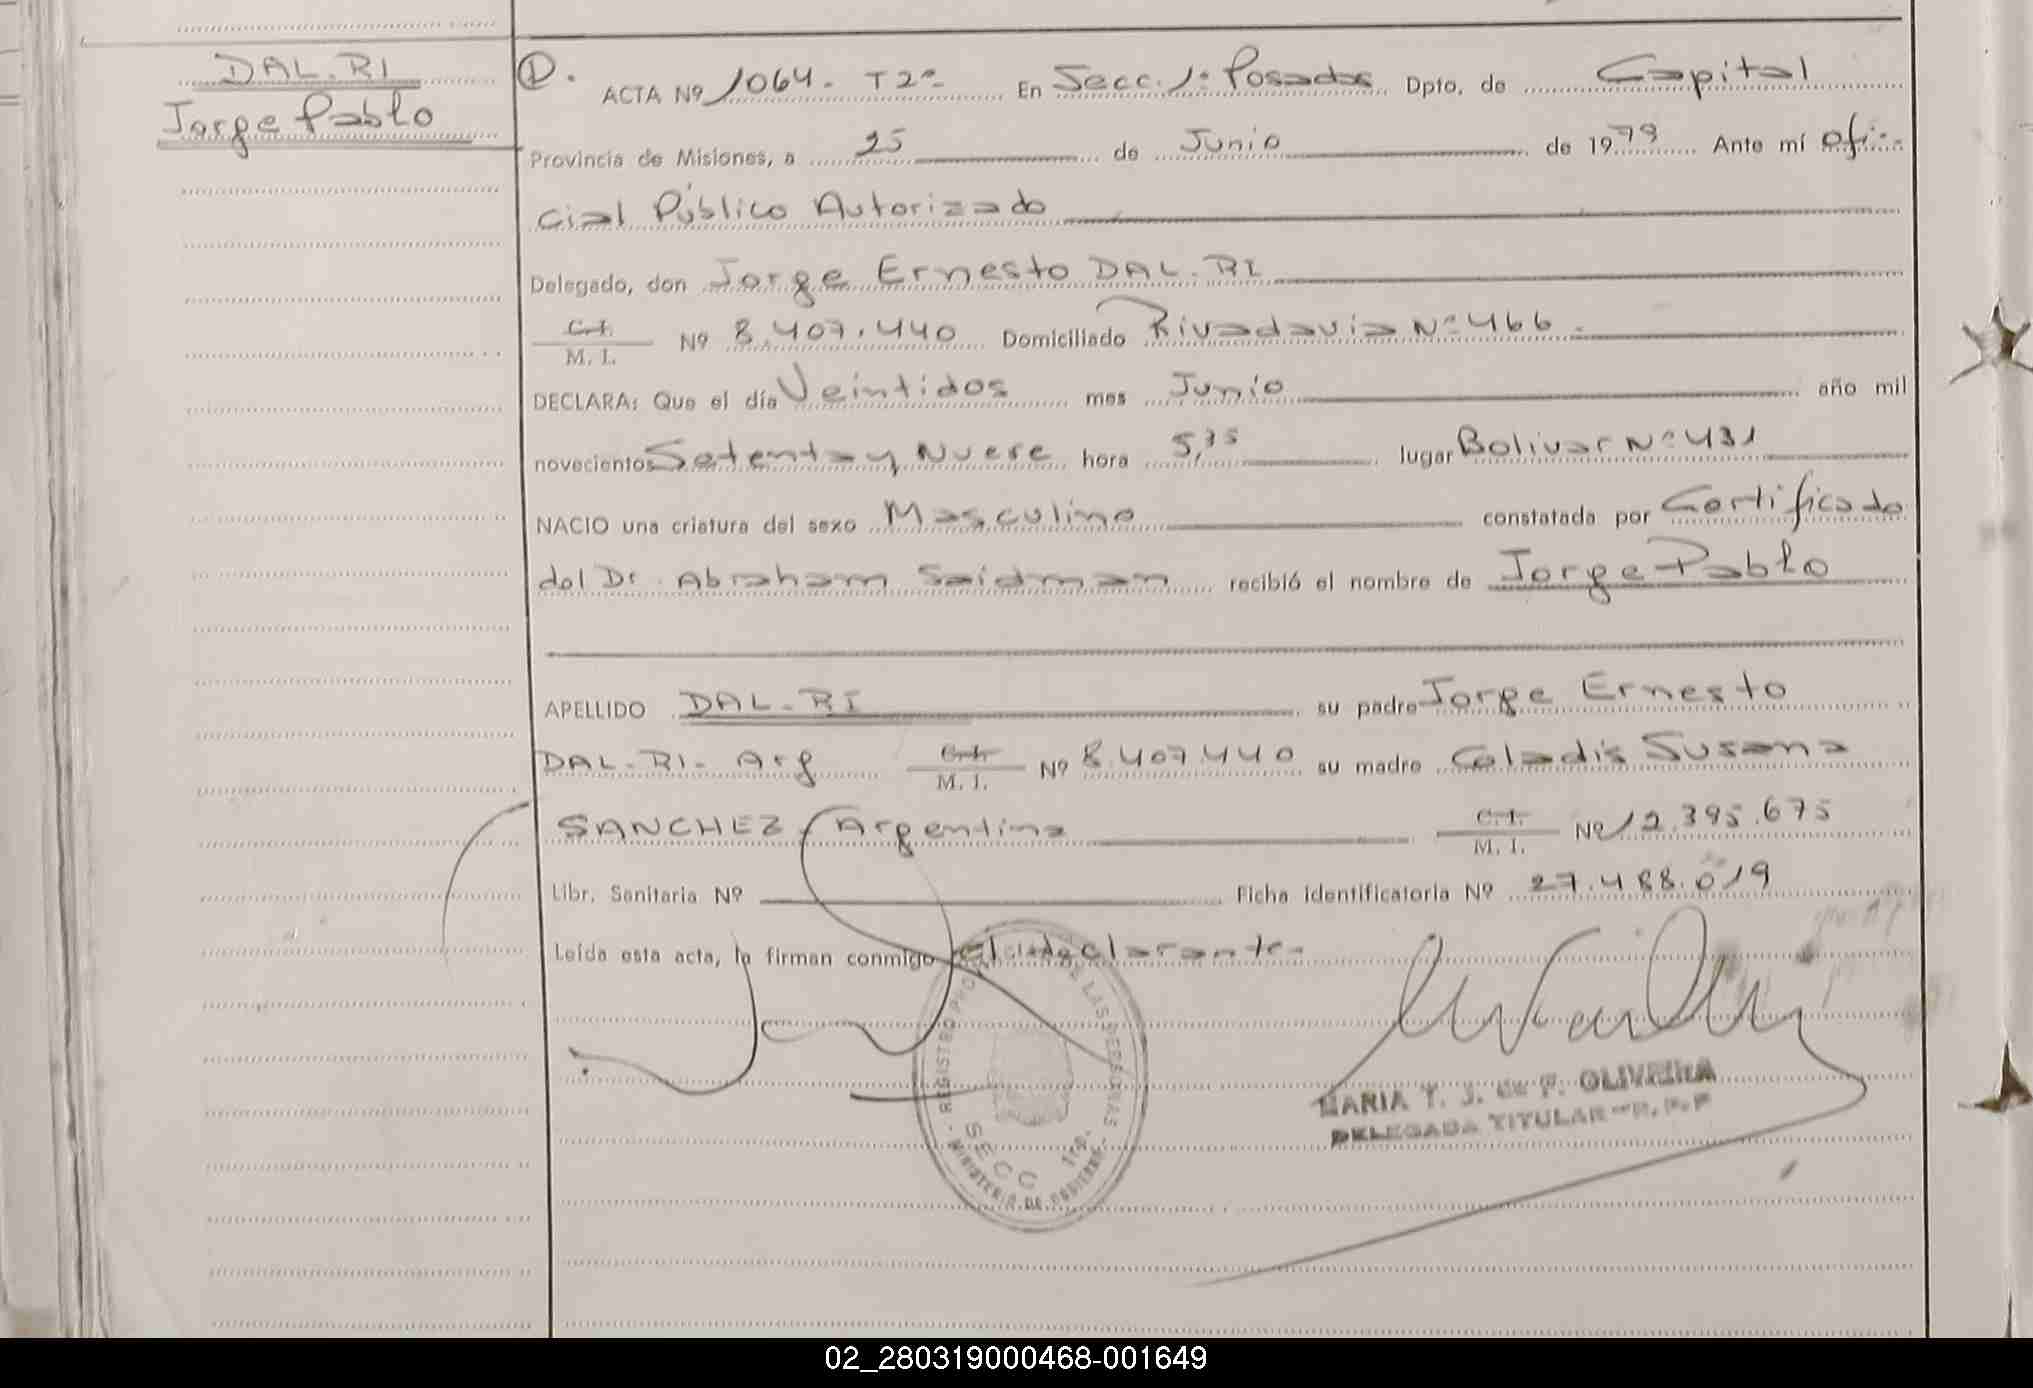 DAL-RI
Jorge Pablo
D. ACTA Nº 1064- T2º En Secc. 1º Posadas Dpto. de Capital
Provincia de Misiones, a 25 de Junio de 1979 Ante mí ofi-
cial Público Autorizado
Delegado, don Jorge Ernesto DAL-RI
C.I. M. I. Nº 8.407.440 Domiciliado Rivadavia Nº 466
DECLARA: Que el día Veintidos mes Junio año mil
novecientos Setenta y Nueve hora 5,35 lugar Bolivar Nº 431
NACIO una criatura del sexo Masculino constatada por Certificado
del Dr. Abraham Saidman recibió el nombre de Jorge Pablo
APELLIDO DAL-RI su padre Jorge Ernesto
DAL-RI- Arg C.I. M. I. Nº 8.407.440 su madre Gladis Susana
SANCHEZ, Argentina C.I. M. I. Nº 12.395.675
Libr. Sanitaria Nº Ficha identificatoria Nº 27.488.019
Leída esta acta, la firman conmigo el declarante-
REGISTRO PRO DE LAS PERSONAS
SECC 1ra.
MINISTERIO DE GOBIERNO
MARIA T. J. de F. OLIVEIRA
DELEGADA TITULAR
02_280319000468-001649